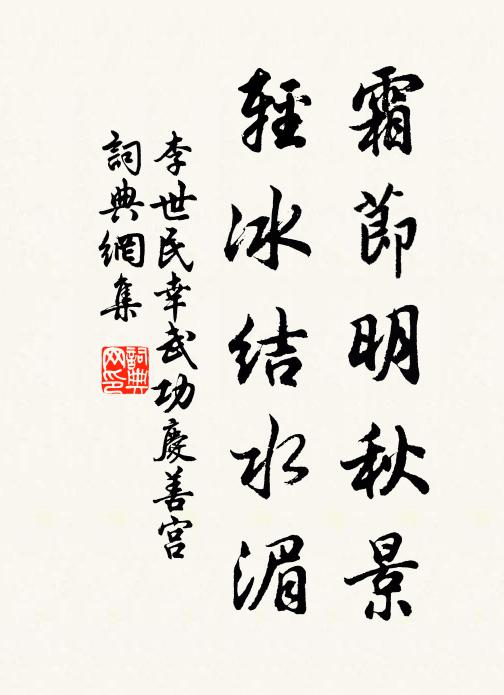 霜節明秋景
輕冰結水湄
李世民幸武功慶善宮
詞典網集
詞典网印